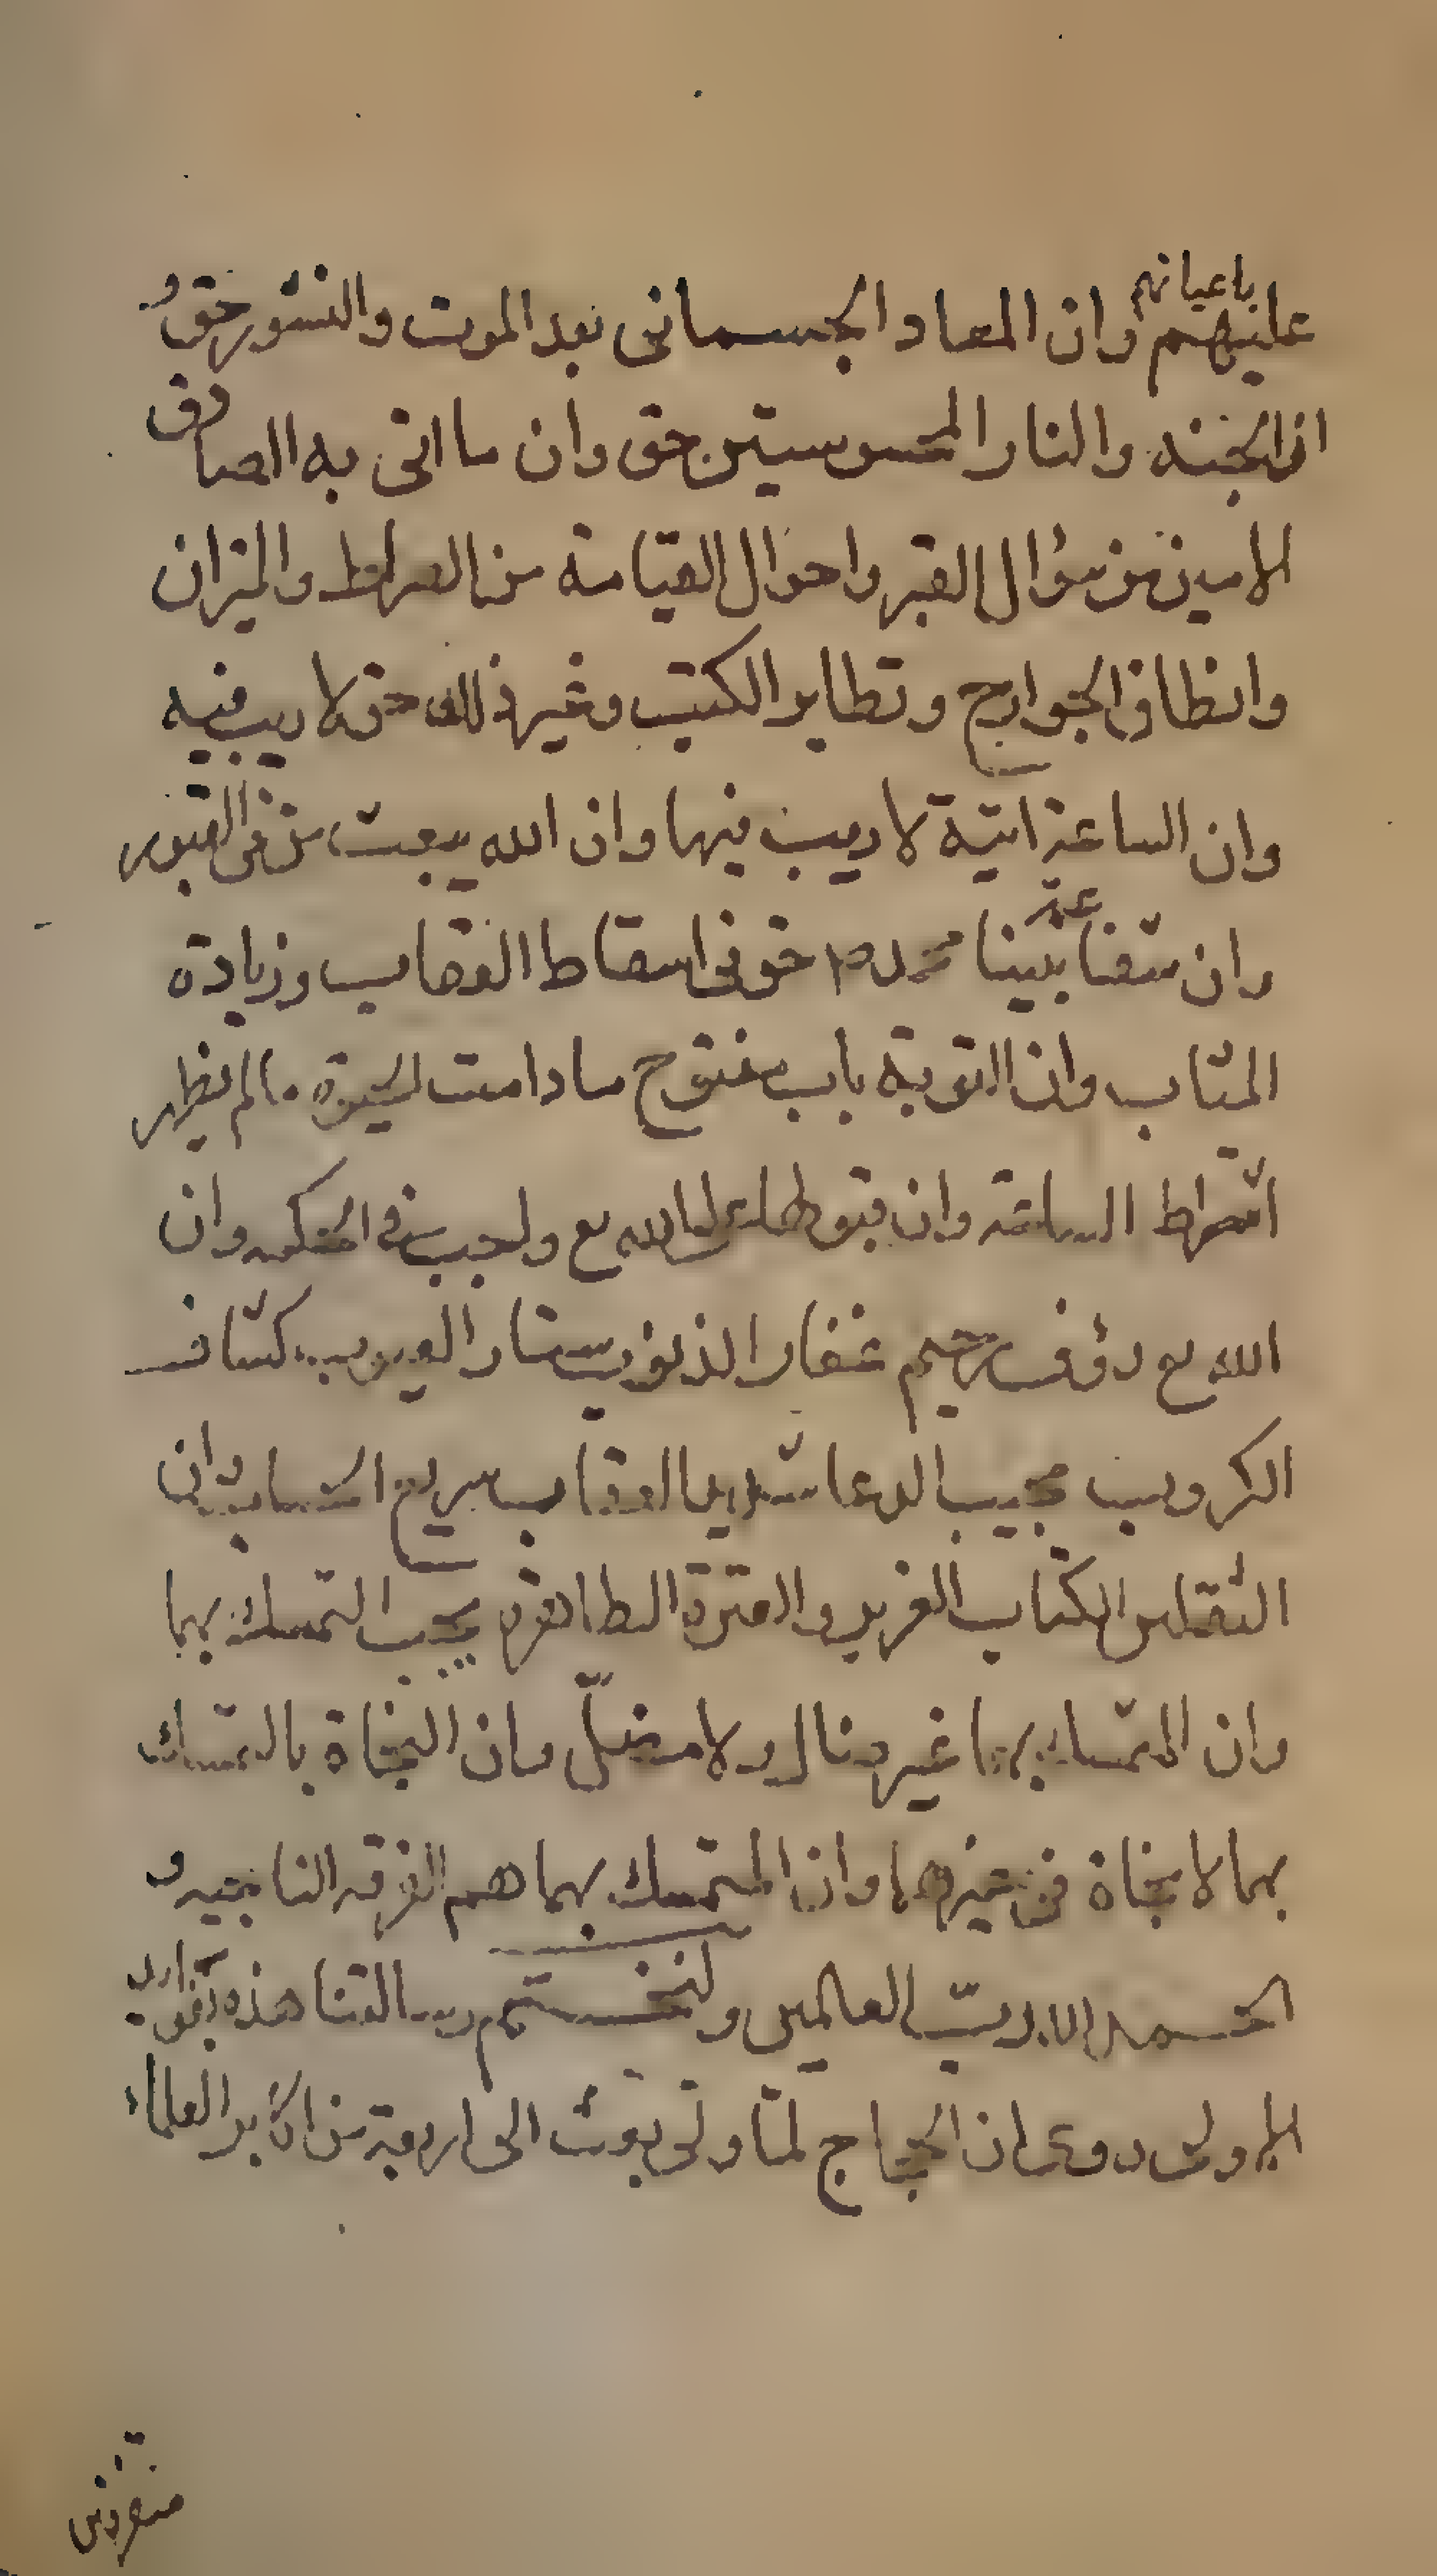 عليهم باعيانهم وان المعاد الجسمانى بعد الموت والنشور حق و
ان الجنه والنار المحسوستين حق وان ما اتى به الصادق
الامين من سؤال القبر واحوال القيامة من الصراط والميزان
وانطاق الجوارح وتطاير الكتب وغير ذلك حق لا ريب فيه
وان الساعة اتية لا ريب فيها وان الله يبعث من فى القبور
وان شفاعة نبينا محمد ص م حق فى اسقاط العقاب وزيادة
الثواب وان التوبة باب مفتوح ما دامت الحيوة ما لم يظهر
اشراط الساعة وان قبولها على الله تع واجب فى الحكمه وان
الله تع رؤف رحيم غفار الذنوب ستار العيوب كشاف
الكروب مجيب الدعا شديد العقاب سريع الحساب وان
الثقلين الكتاب العزيز والعترة الطاهرة يجب التمسك بهما
وان المتمسك بهما غير ضال ولا مضلّ وان النجاة بالتمسك
بهما لا نجاة فى غيرهما وان المتمسك بهما هم الفرقه الناجيه و
الحمد لله ربّ العالمين ولنختم رسالتنا هذه بفوايد
الاولى روى ان الحجاج لما ولى بعث الى اربعة من اكابر العلماء
متفرقين